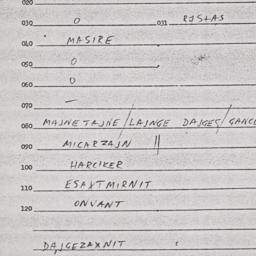 020
030 0 031 RJSTAS
040 MASIRE
050 0
060 0
070 —
080 MAJNETAJNE / LAJNGE DAJGES /
090 MICARZAJN ||
100 HARCIKER
110 ESAXTMIRNIT
120 ONVANT
DAJGEZAXNIT